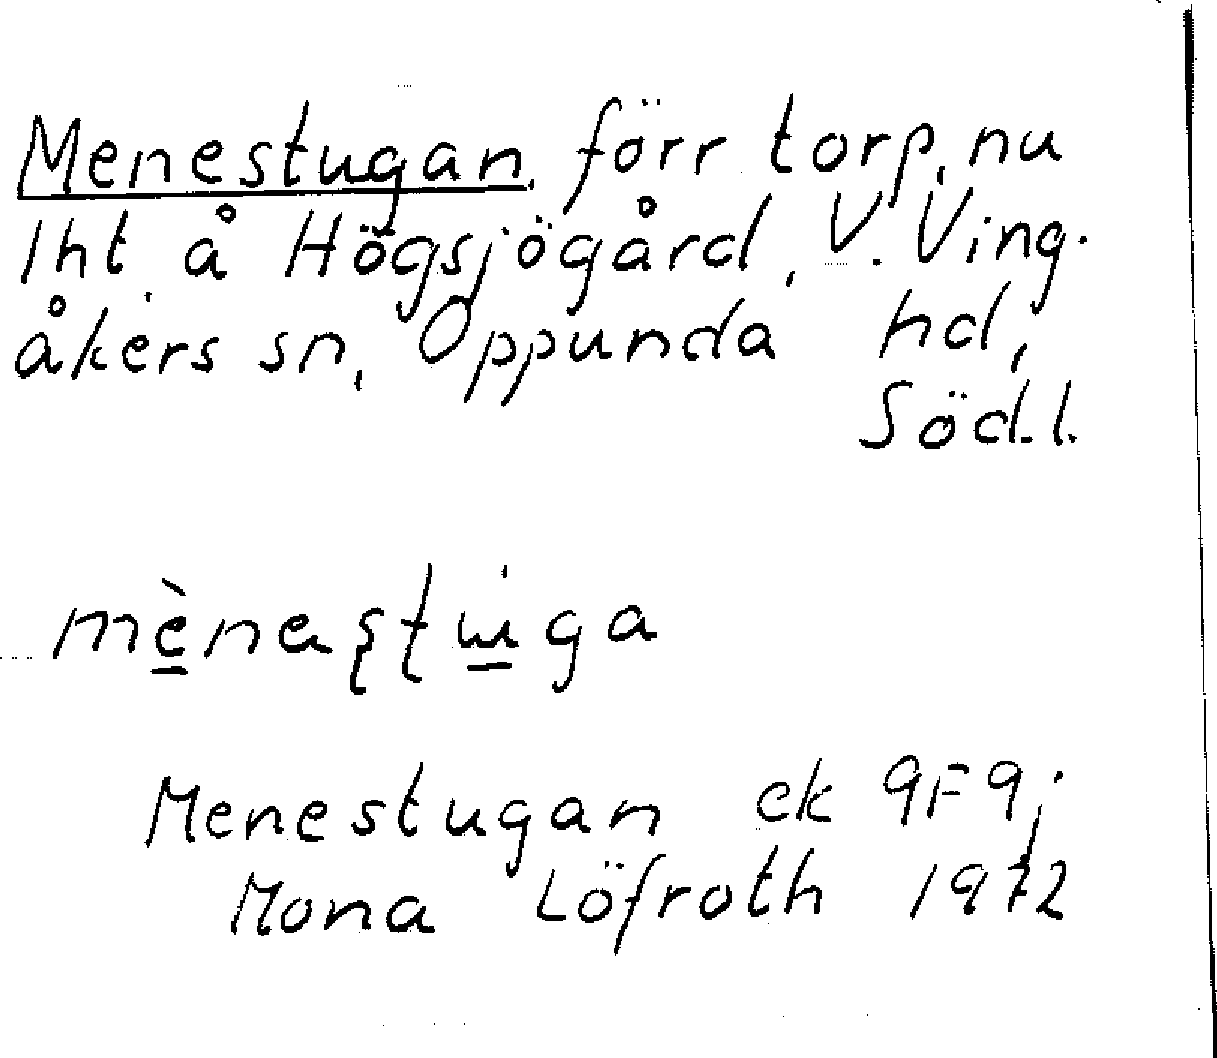 Menestugan, förr torp, nu
lht å Högsjögård, V. Ving-
åkers sn, Oppunda hd,
Södl.
Menestugan ek 9F9j
Mona Löfroth 1972